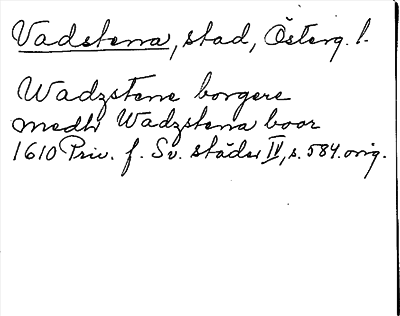 Vadstena, stad, Österg. l.
Wadzstene borgere
medh Wadzstena boar
1610 Priv. f. Sv. städer IV, s. 584. orig.